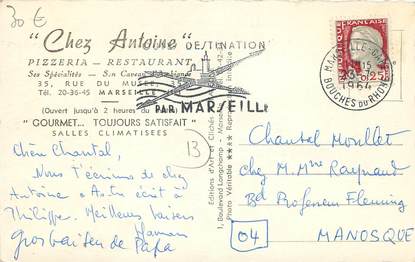 30 €
"Chez Antoine"
PIZZERIA - RESTAURANT
Ses Spécialités - Son Caveau d'Ambiance
35, RUE DU MUSÉE, 35
Tél. 20-36-45 MARSEILLE
(Ouvert jusqu'à 2 heures du matin)
"GOURMET... TOUJOURS SATISFAIT"
SALLES CLIMATISÉES
Chère Chantal,
Nous t'écrivons de chez
Antoine. As-tu écrit à
Philippe. Meilleurs baisers
Maman
Gros baisers de Papa
DESTINATION
PAR MARSEILLE
13
Editions d'Art et Clichés
1, Boulevard Longchamp - Marseille
Photo Véritable ★★★
FRANÇAISE
0,25
MARSEILLE
15
1964
BOUCHES DU RHONE
Chantal Moullet
chez M. Mme Raynaud
Bd Professeur Fleming
04 MANOSQUE